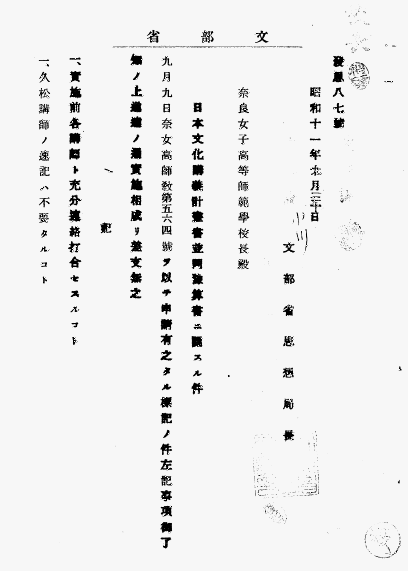 文部省
發思八七號
昭和十一年九月三十日
文部省思想局長
小川
奈良女子高等師範學校長殿
日本文化講義計畫書並同豫算書ニ關スル件
九月九日奈女高師教第五六四號ヲ以テ申請有之タル標記ノ件左記事項御了
知ノ上遺憾ノ無實施相成リ差支無之
記
一、實施前各講師ト充分連絡打合セスルコト
一、久松講師ノ速記ハ不要タルコト